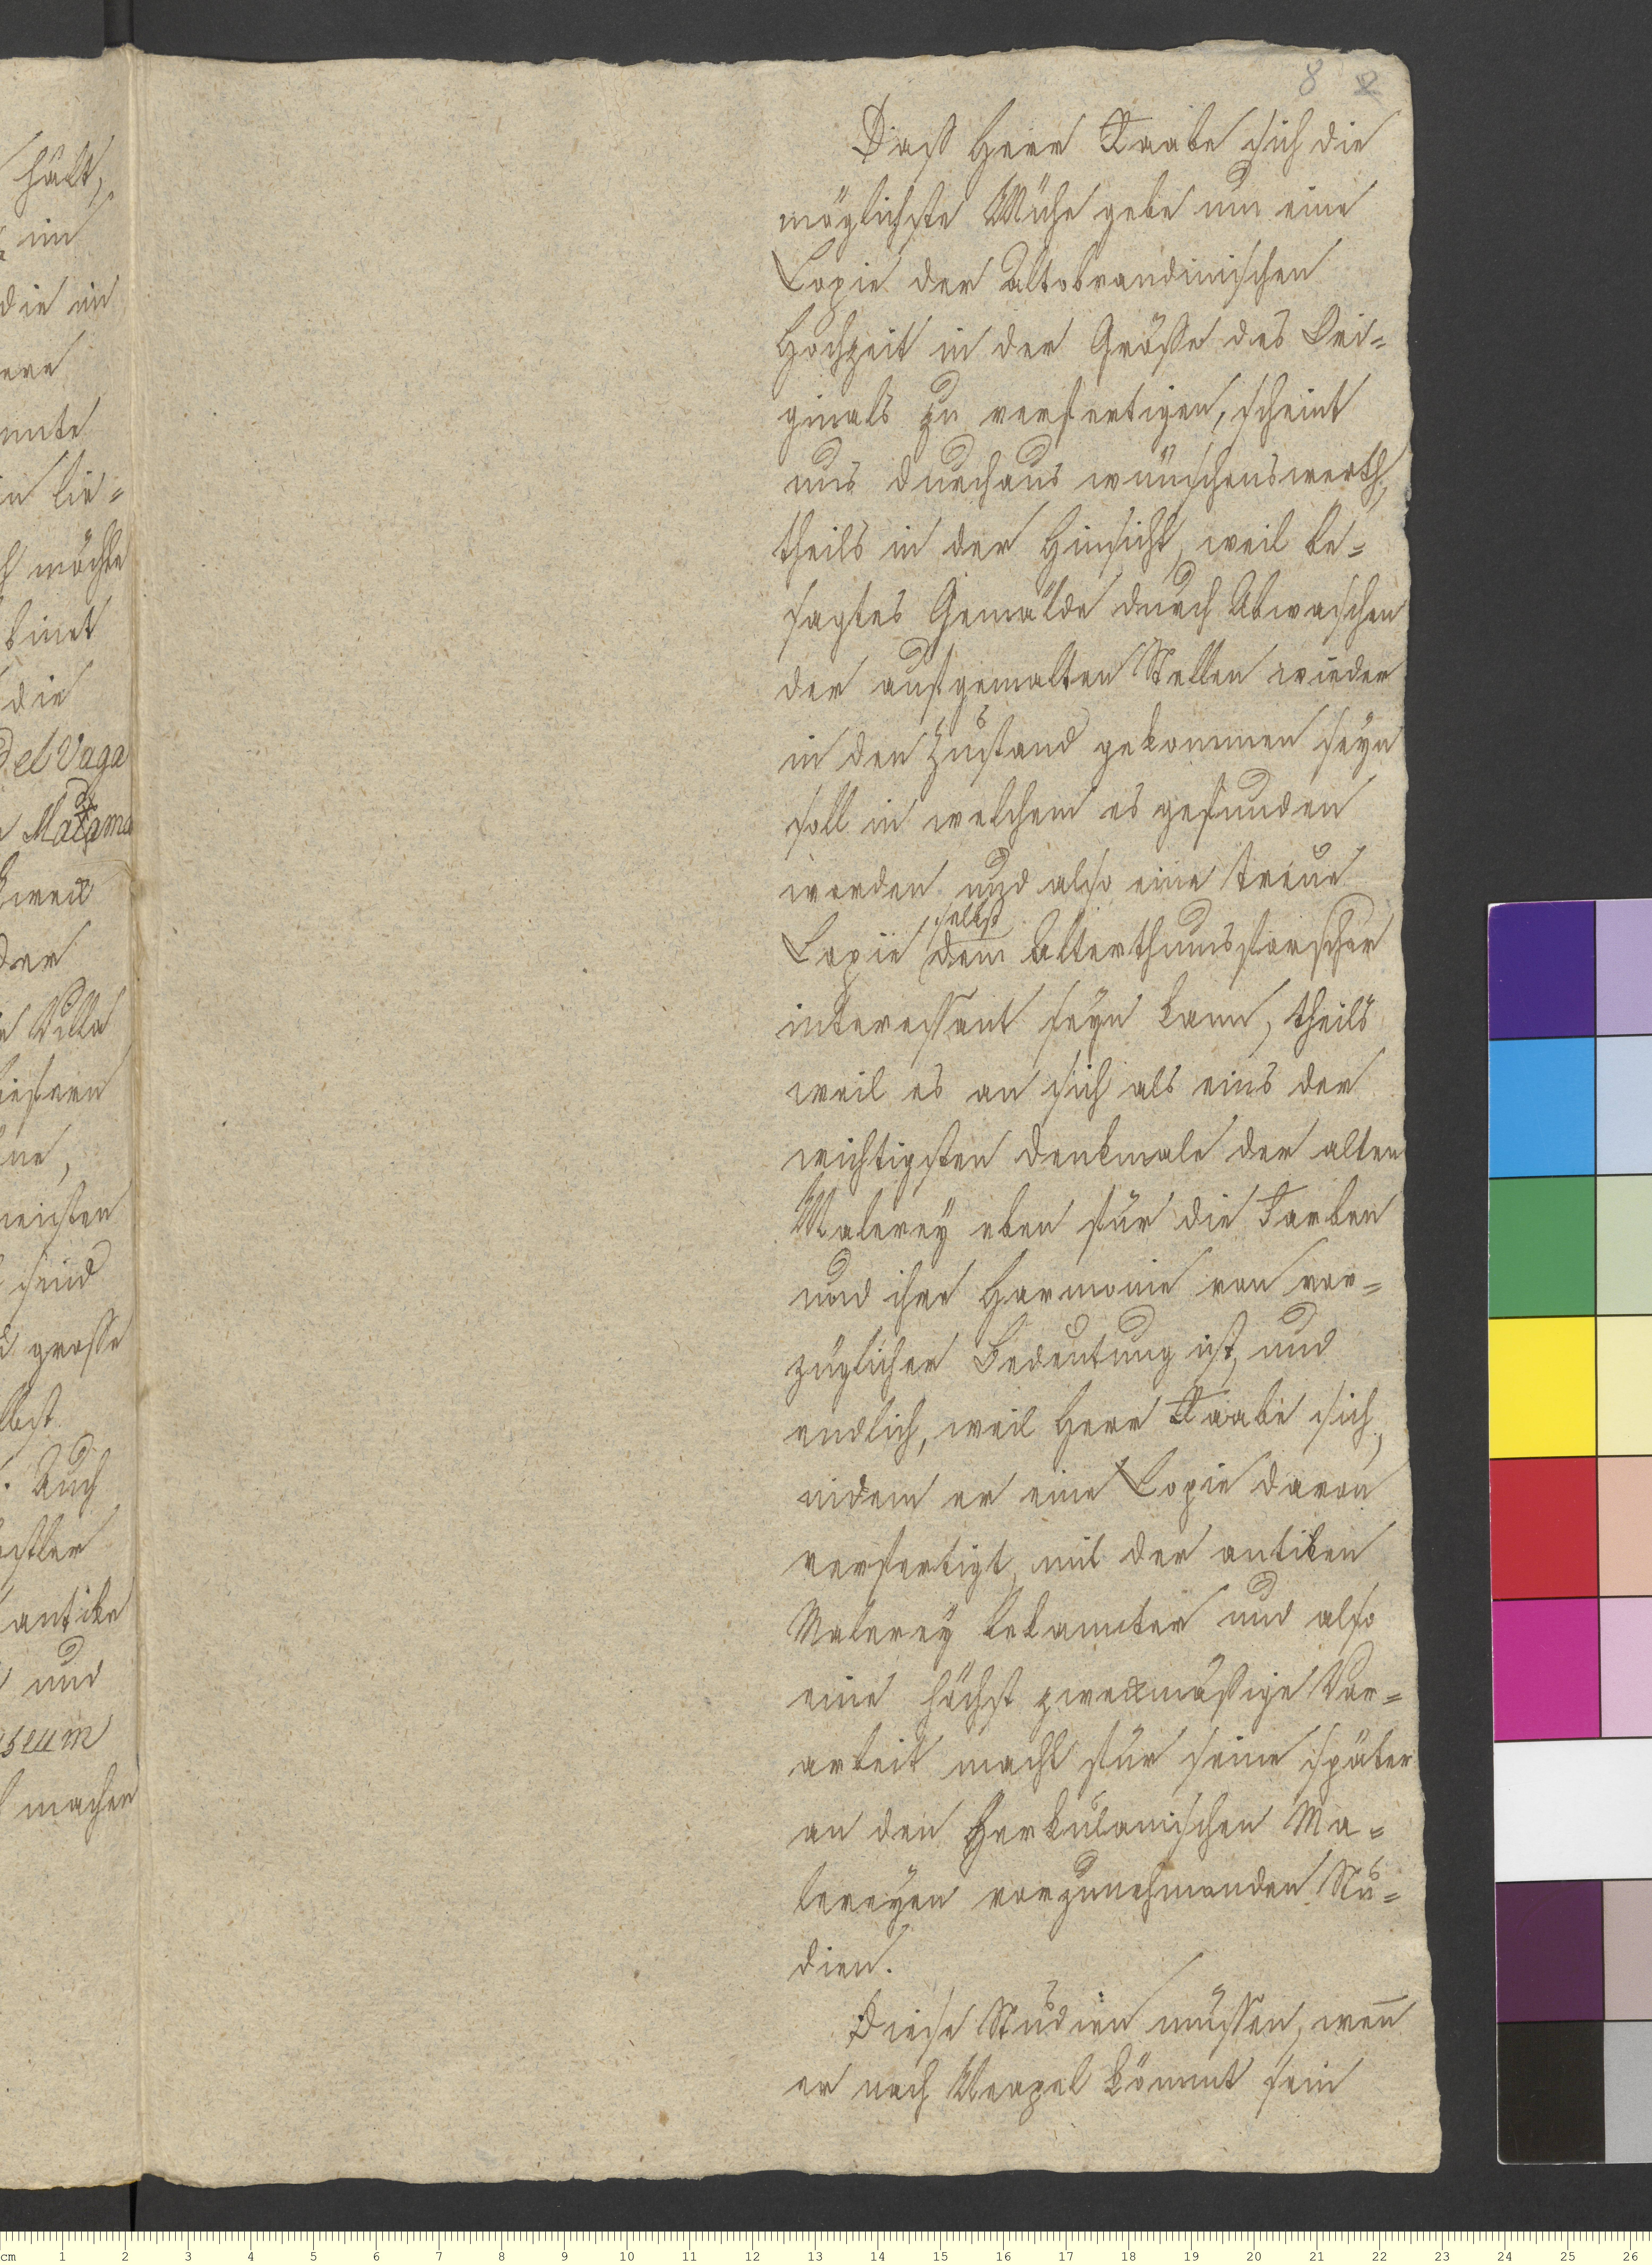 hält,
im
die in
ere
nnte
in lie=
möchte
binet
die
del Vaga
Madama
zwei
der
Villa
liefern
ne,
meisten
sind
grosse
lbst
. Auch
stler
antike
und
seum
machen
8 2
Dass Herr Raabe sich die
möglichste Mühe gebe um eine
Copie der Altobrandinischen
Hochzeit in der Grösse des Ori=
ginals zu verfertigen, scheint
uns durchaus wünschenswerth,
theils in der Hinsicht, weil be=
sagtes Gemälde durch Abwaschen
der aufgemalten Stellen wieder
in den Zustand gekommen seyn
soll in welchem es gefunden
worden und also eine treue
selbst
Copie dem Alterthumsforscher
interessant seyn kann, theils
weil es an sich als eins der
wichtigsten Denkmale der alten
Malerey eben für die Farben
und ihre Harmonie von vor=
züglicher Bedeutung ist, und
endlich, weil Herr Raabe sich,
indem er eine Copie davon
verfertigt, mit der antiken
Malerey bekannter und also
eine höchst zweckmäßige Vor=
arbeit macht für seine später
an den Herkulanischen Ma=
lereyen vorzunehmenden Stu=
dien.
Diese Studien müssen, weñ
er nach Neapel kömmt sein
cm 1 2 3 4 5 6 7 8 9 10 11 12 13 14 15 16 17 18 19 20 21 22 23 24 25 26